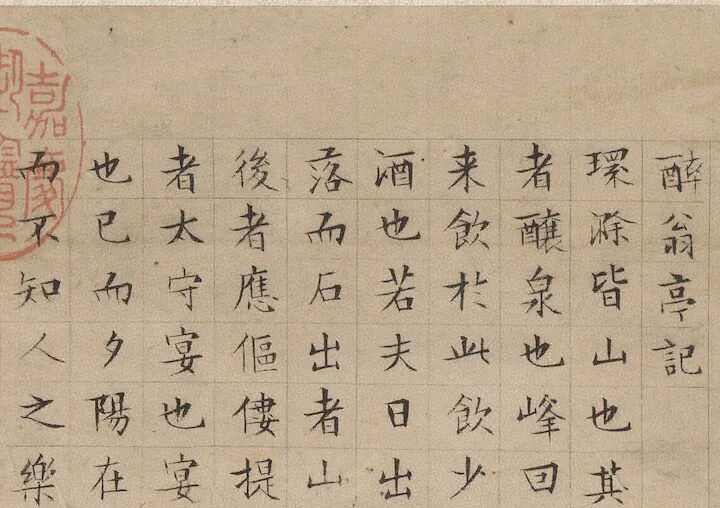 醉翁亭記
環滁皆山也其
者釀泉也峰回
来飲於此飲少
酒也若夫日出
落而石出者山
後者應傴僂提
者太守宴也宴
也已而夕陽在
而不知人之樂
嘉慶
御覽